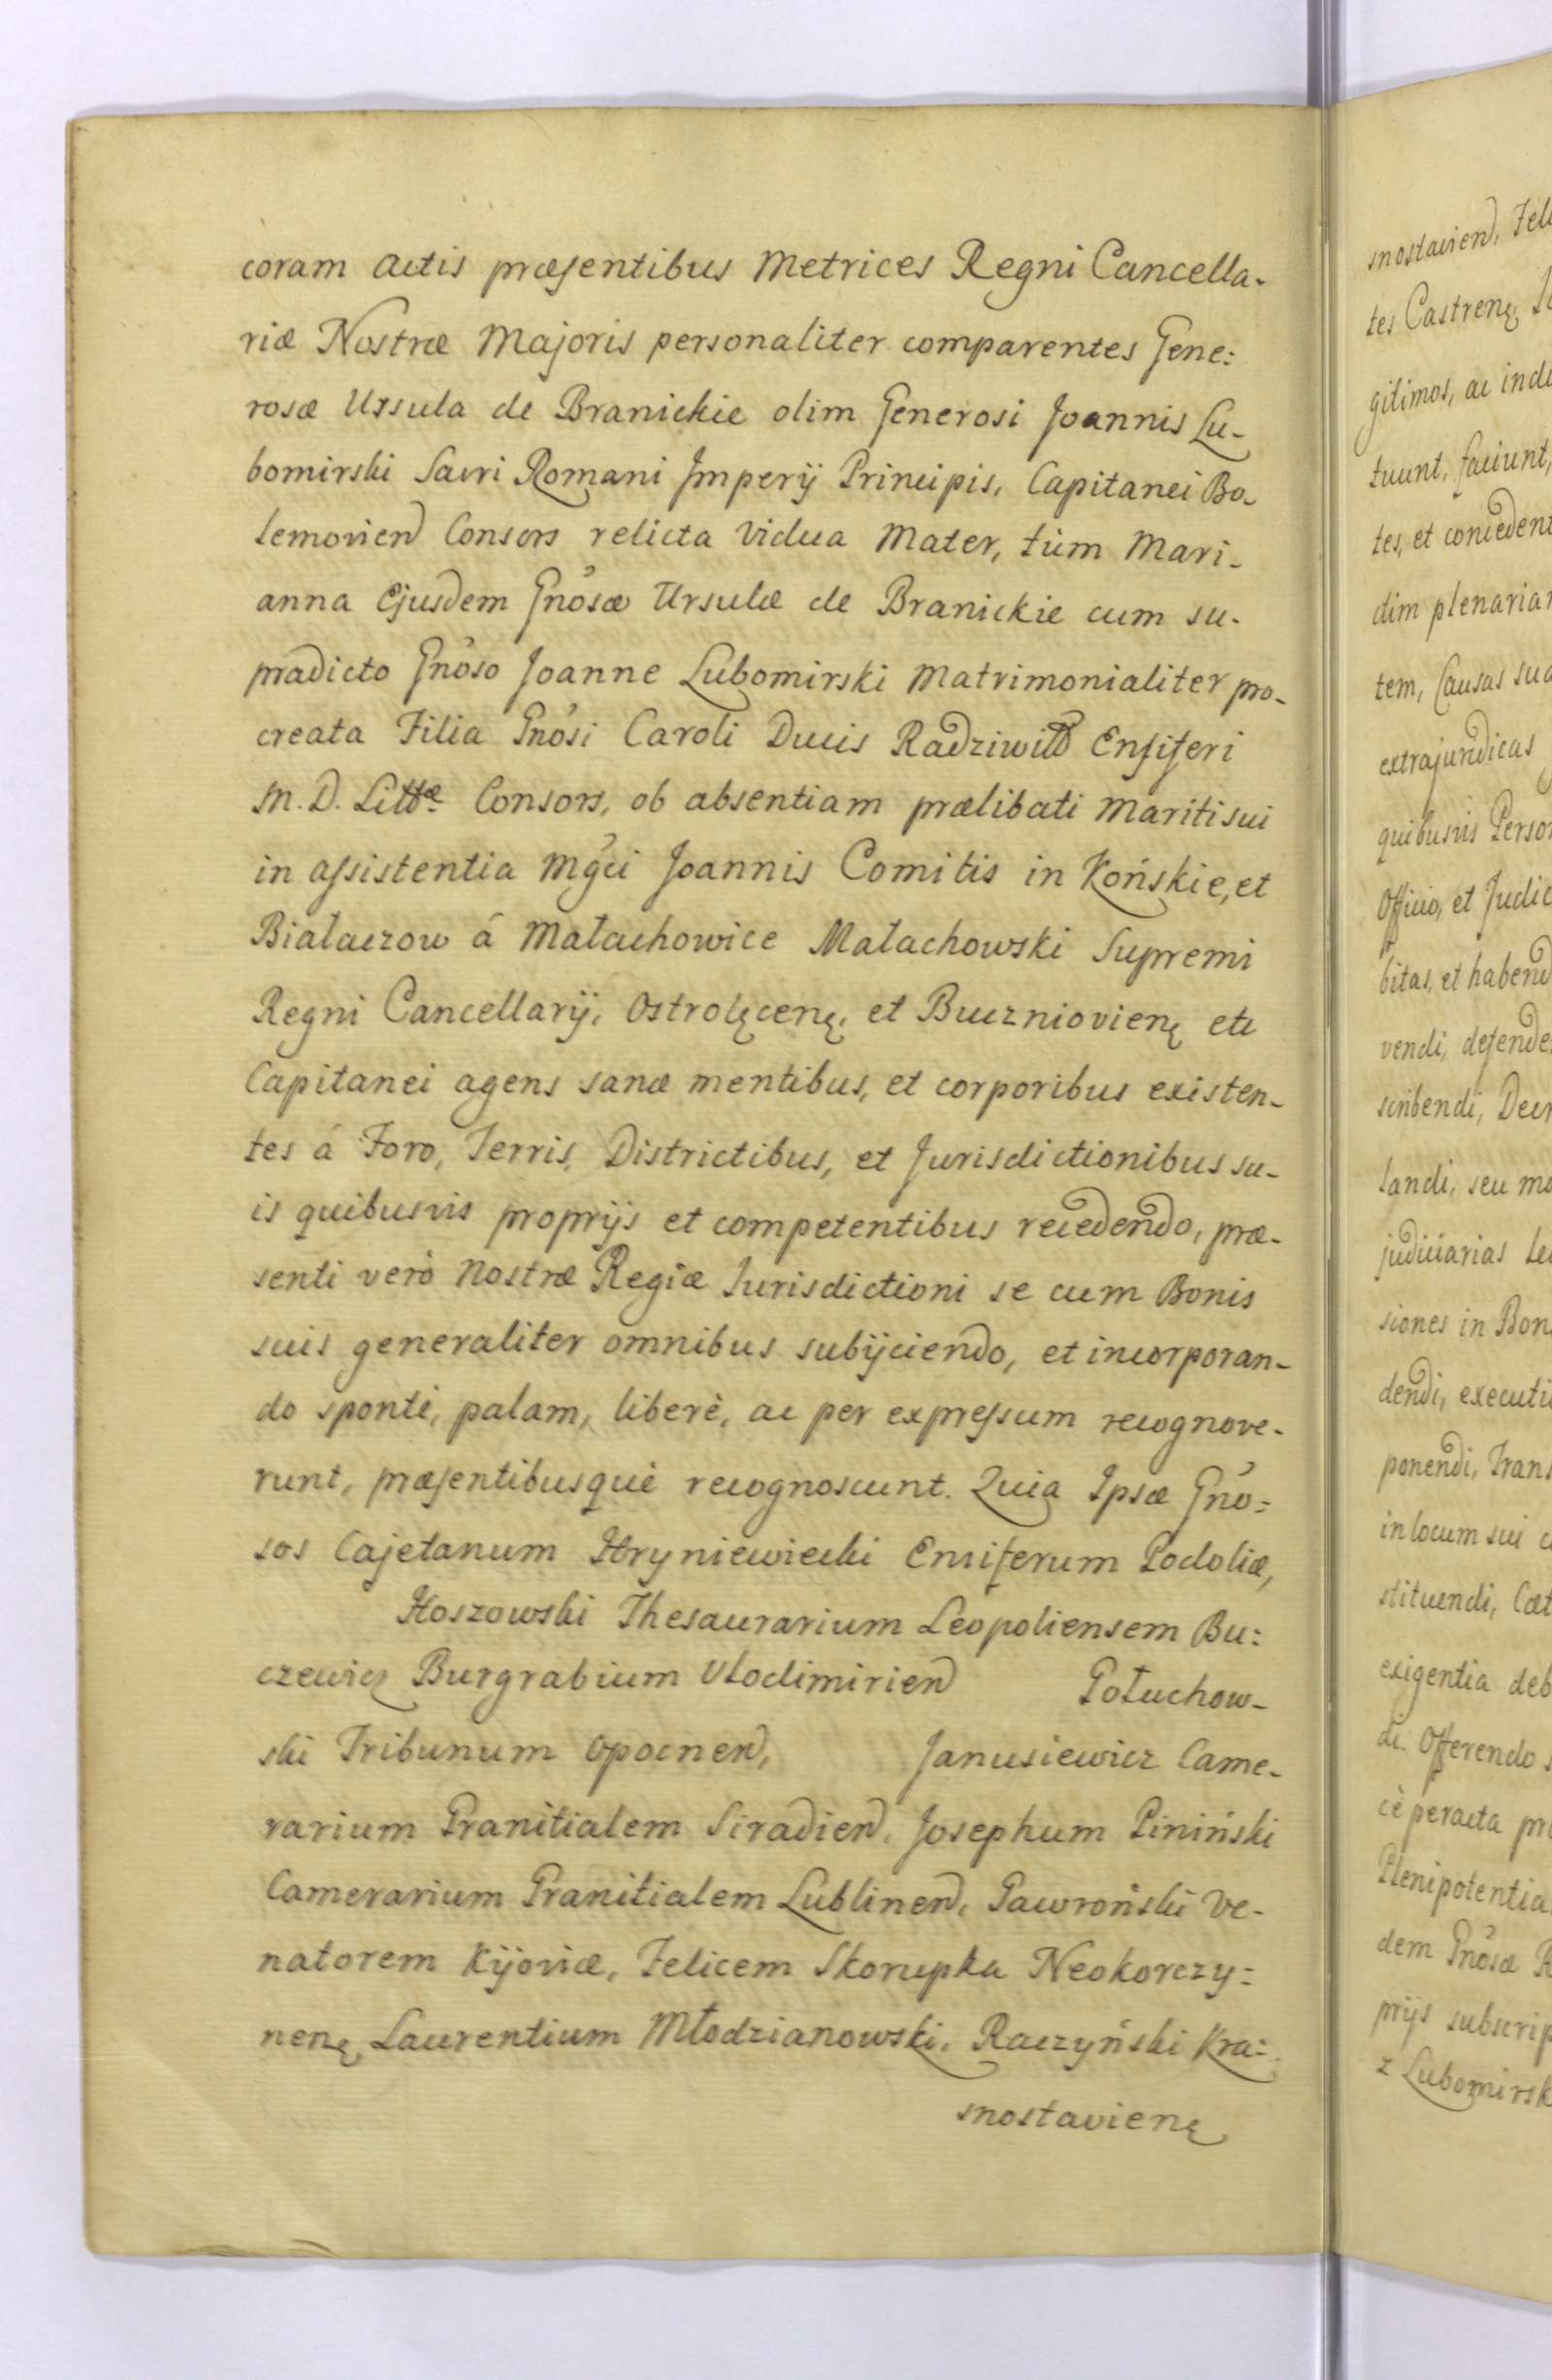 coram actis præsentibus Metrices Regni Cancella-
riæ Nostræ Majoris personaliter comparentes Gene:
rosæ Ursula de Branickie olim Generosi Joannis Lu-
bomirski Sacri Romani Imperij Principis, Capitanei Bo-
lemovien Consors relicta Vidua Mater, tùm Mari-
anna Ejusdem Gnosæ Ursulæ de Branickie cum su-
pradicto Gnoso Joanne Lubomirski Matrimonialiter pro-
creata Filia Gnosi Caroli Ducis Radziwiłł Ensiferi
M. D. Littæ Consors, ob absentiam prælibati Mariti sui
in assistentia Mgci Joannis Comitis in Końskie, et
Białaczow á Małachowice Małachowski Supremi
Regni Cancellarij, Ostrolęcenę, et Buczniovienę etc
Capitanei agens sanæ mentibus, et corporibus existen-
tes á Foro, Terris, Districtibus, et Jurisdictionibus su-
is quibusvis proprijs et competentibus recedendo, præ-
senti verò Nostræ Regiæ Jurisdictioni se cum Bonis
suis generaliter omnibus subijciendo, et incorporan-
do sponte, palam, liberè, ac per expressum recognove-
runt, præsentibusque recognoscunt. Quia Ipsæ Gno:
sos Cajetanum Hryniewiecki Ensiferum Podoliæ,
Hoszowski Thesaurarium Leopoliensem Bu:
czewicz Burgrabium Vlodimirien Połuchow-
ski Tribunum Opocnen, Janusiewicz Came-
rarium Granitialem Siradien, Josephum Piniński
Camerarium Granitialem Lublinen, Gawroński Ve-
natorem Kijoviæ, Felicem Skorupka Neokorczy:
nenę Laurentium Młodzianowski, Raczyński Kra:
snostavienę
snostavien, Feli
tes Castrenę,
gitimos, ac indu
tuunt, faciunt,
tes, et conceden
dim plenariam
tem, Causas sua
extrajuridicas
quibusvis Person
Officio, et Judic
bitas, et habend
vendi, defende
scribendi, Decr
landi, seu mo
judiciarias
siones in Bon
dendi, executi
ponendi, Trans
in locum sui
stituendi, Cæt
exigentia deb
di. Offerendo
cè peracta pr
Plenipotentia
dem Gnosæ
prijs subscrip
z Lubomirsk